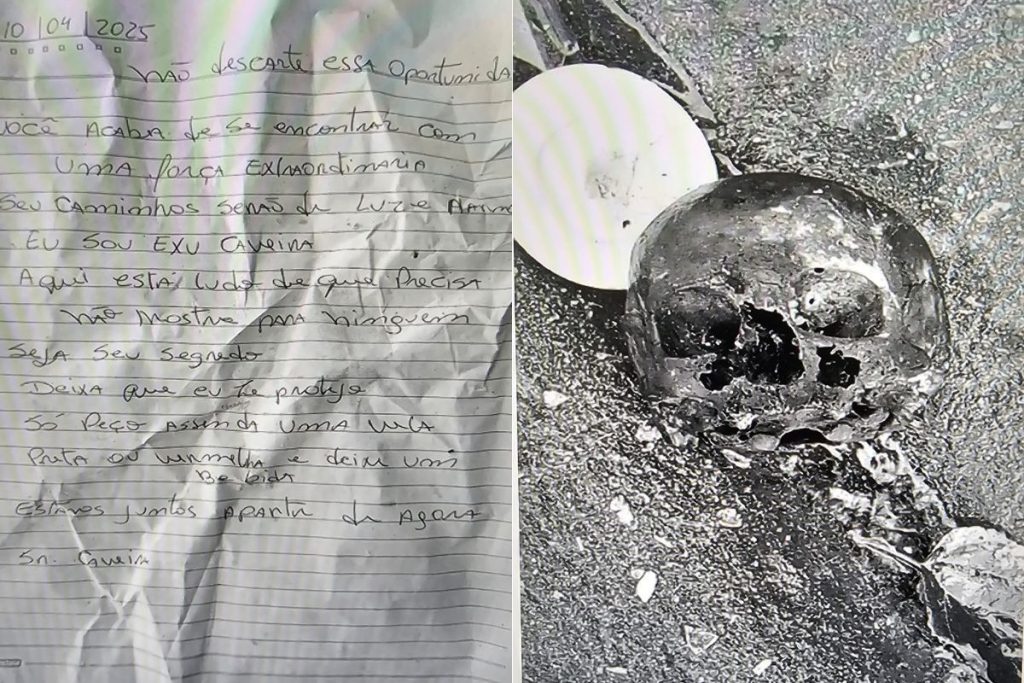 10/04/2025
NÃO descarte essa oportunida
você acaba de se encontrar com
uma força extraordimaria
seu camminhos serão de Luz e
Eu sou EXU CAVEIRA
Aqui está tudo de que precisa
NÃO mostre para ninguem
seja seu segredo
Deixa que eu te protejo
Só peço assenda uma vela
Preta ou vermelha e deixe um
Bebida
Estamos juntos aparti de agora
Sr. Caveira